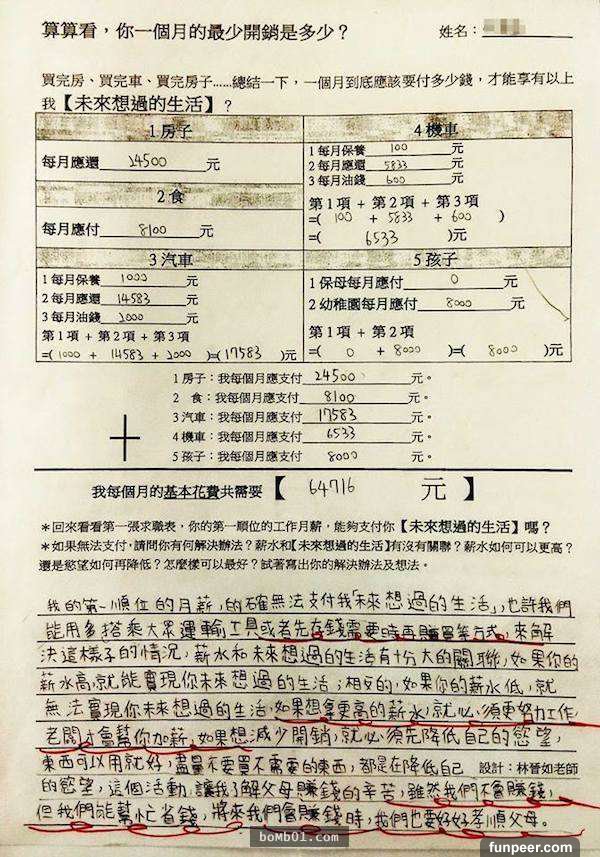 算算看，你一個月的最少開銷是多少？ 姓名：
買完房、買完車、買完房子……總結一下，一個月到底應該要付多少錢，才能享有以上
我【未來想過的生活】？
1 房子
每月應還 24500 元
2 食
每月應付 8100 元
3 汽車
1 每月保養 1000 元
2 每月應還 14583 元
3 每月油錢 2000 元
第 1 項 + 第 2 項 + 第 3 項
=( 1000 + 14583 + 2000 )=( 17583 )元
4 機車
1 每月保養 100 元
2 每月應還 5833 元
3 每月油錢 600 元
第 1 項 + 第 2 項 + 第 3 項
=( 100 + 5833 + 600 )
=( 6533 )元
5 孩子
1 保母每月應付 0 元
2 幼稚園每月應付 8000 元
第 1 項 + 第 2 項
=( 0 + 8000 )=( 8000 )元
1 房子：我每個月應支付 24500 元。
2 食：我每個月應支付 8100 元。
3 汽車：我每個月應支付 17583 元。
4 機車：我每個月應支付 6533 元。
5 孩子：我每個月應支付 8000 元。
+
我每個月的基本花費共需要【 64716 元 】
*回來看看第一張求職表，你的第一順位的工作月薪，能夠支付你【未來想過的生活】嗎？
*如果無法支付，請問你有何解決辦法？薪水和【未來想過的生活】有沒有關聯？薪水如何可以更高？
還是慾望如何再降低？怎麼樣可以最好？試著寫出你的解決辦法及想法。
我的第一順位的月薪，的確無法支付我「未來想過的生活」，也許我們
能用多搭乘大眾運輸工具或者先存錢需要時再購買等方式，來解
決這樣子的情況，薪水和未來想過的生活有十分大的關聯，如果你的
薪水高，就能實現你未來想過的生活；相反的，如果你的薪水低，就
無法實現你未來想過的生活，如果想拿更高的薪水，就必須更努力工作，
老闆才會幫你加薪，如果想減少開銷，就必須先降低自己的慾望，
東西可以用就好，盡量不要買不需要的東西，都是在降低自己 設計：林晉如老師
的慾望，這個活動，讓我了解父母賺錢的辛苦，雖然我們不會賺錢，
但我們能幫忙省錢，將來我們會賺錢時，我們也要好好孝順父母。
bomb01.com
funpeer.com